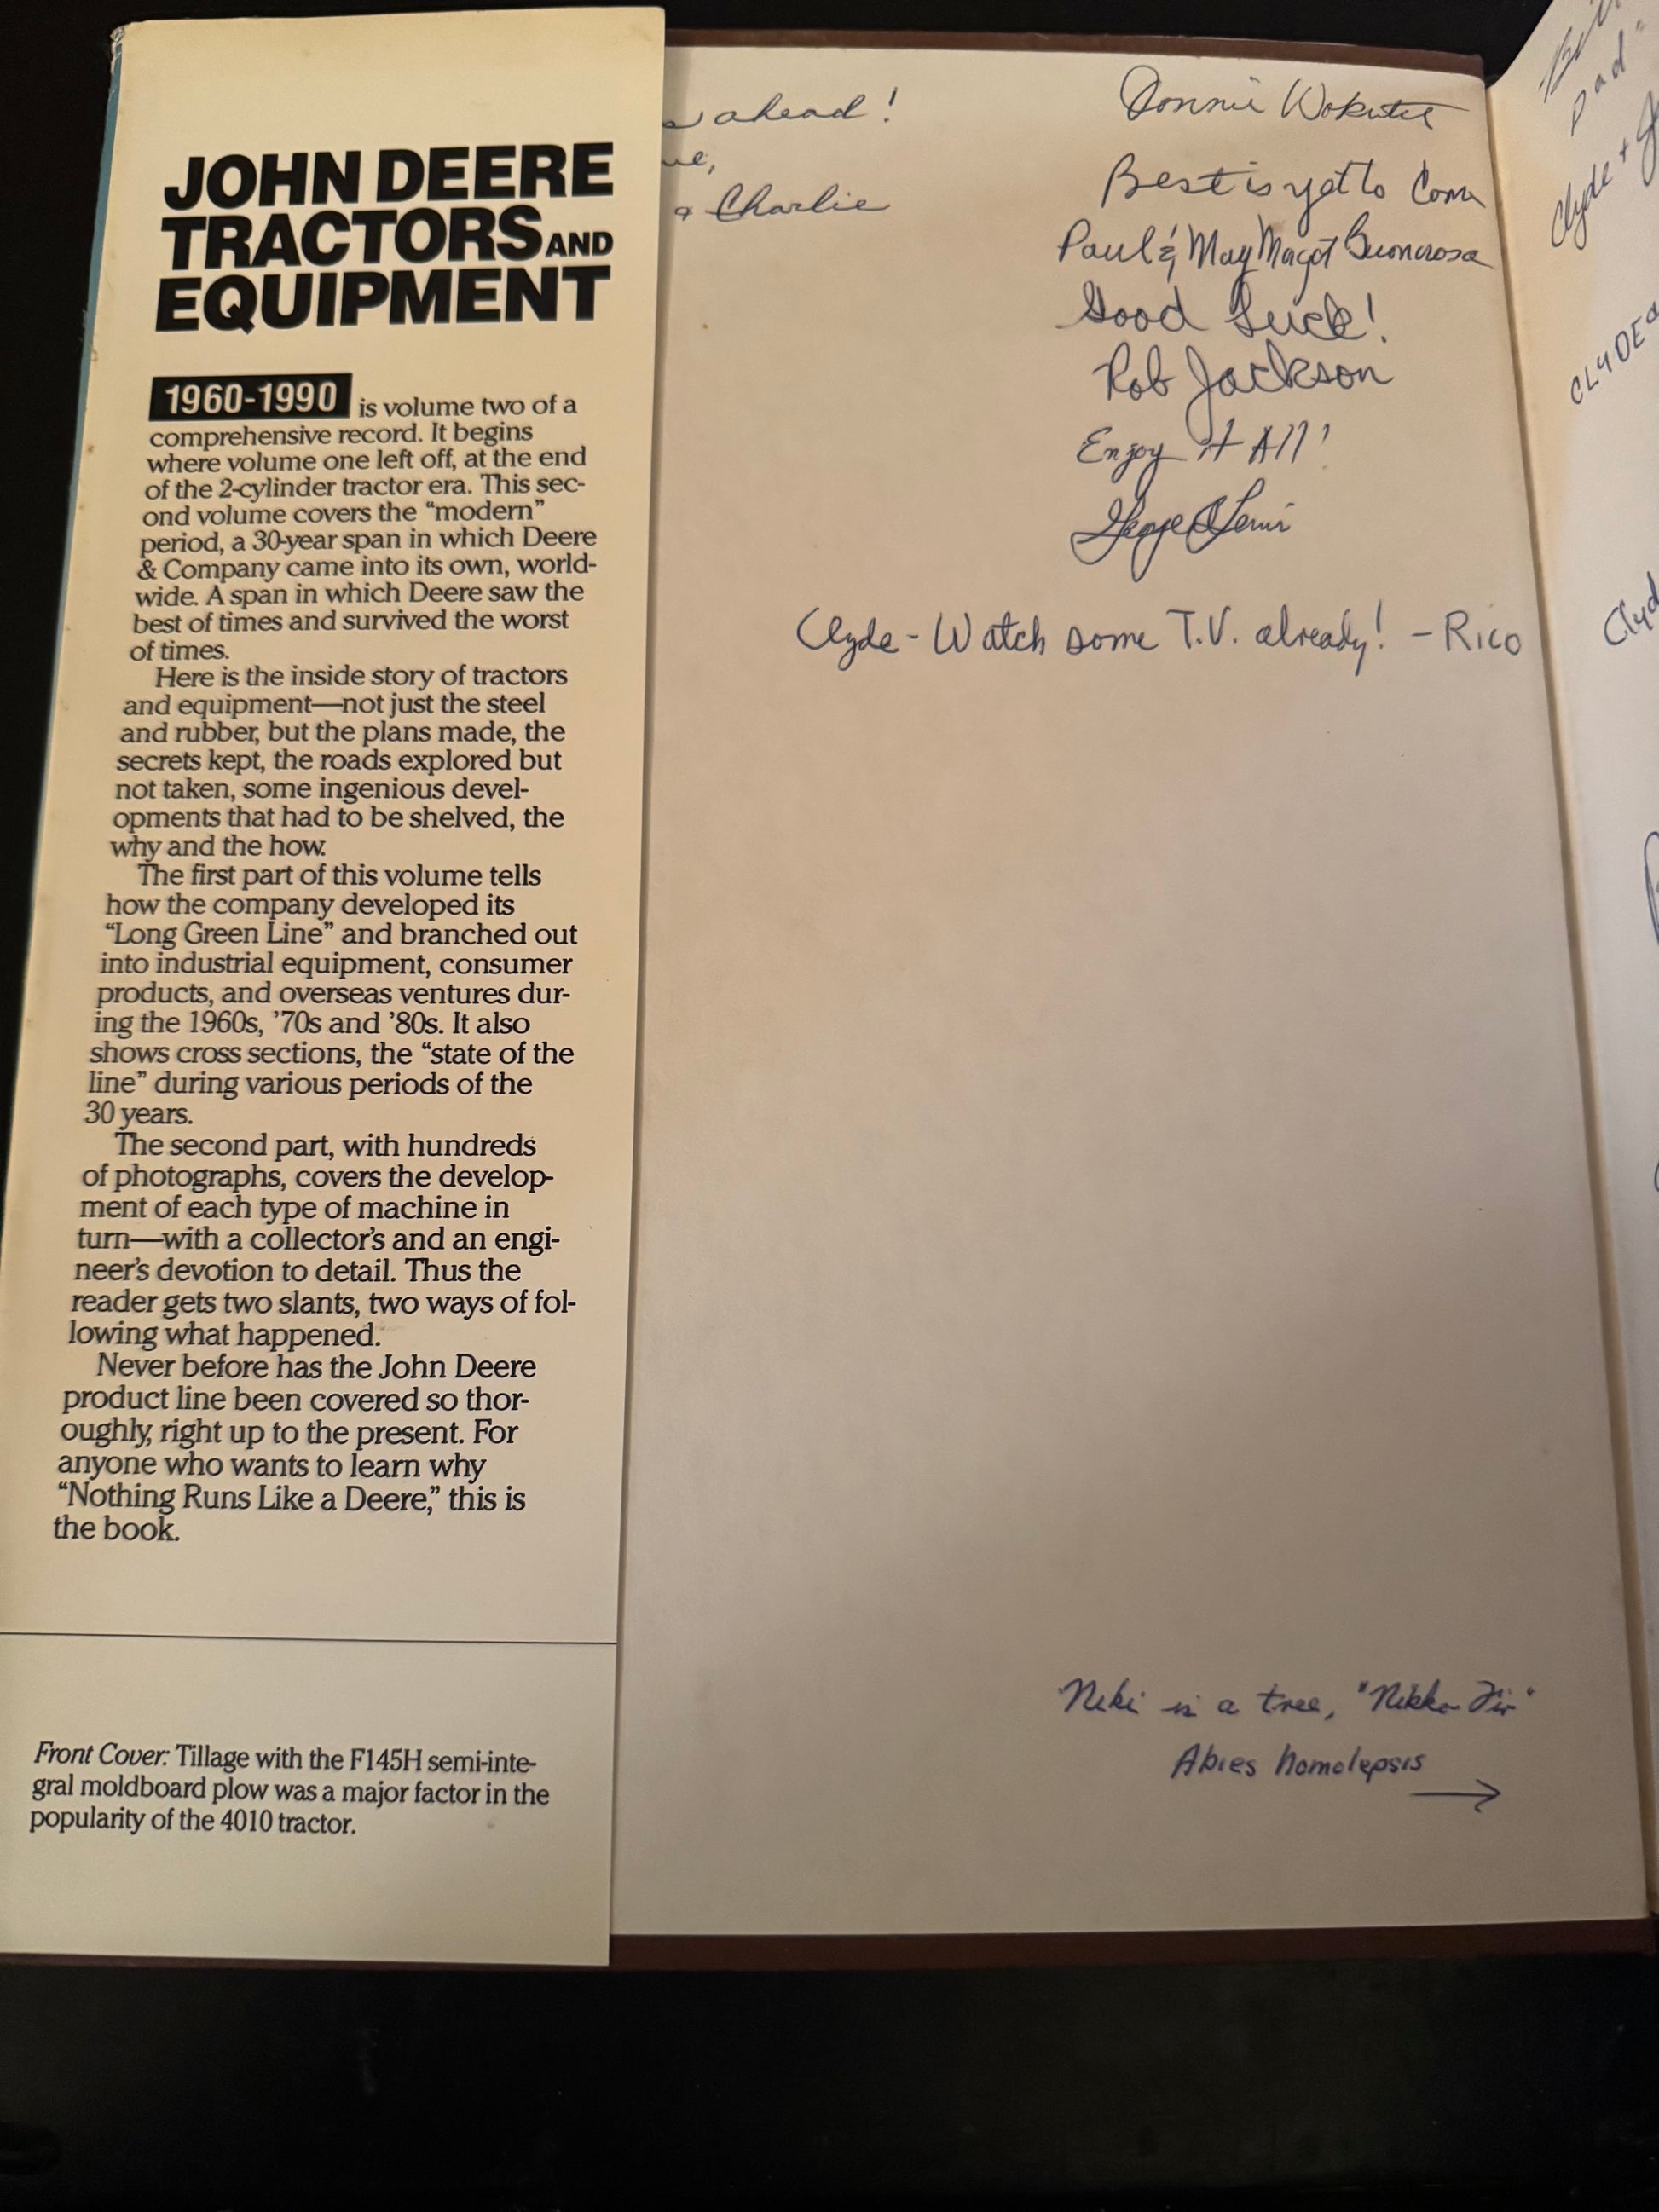 JOHN DEERE
TRACTORS AND
EQUIPMENT
1960-1990 is volume two of a
comprehensive record. It begins
where volume one left off, at the end
of the 2-cylinder tractor era. This sec-
ond volume covers the “modern”
period, a 30-year span in which Deere
& Company came into its own, world-
wide. A span in which Deere saw the
best of times and survived the worst
of times.
Here is the inside story of tractors
and equipment—not just the steel
and rubber, but the plans made, the
secrets kept, the roads explored but
not taken, some ingenious devel-
opments that had to be shelved, the
why and the how.
The first part of this volume tells
how the company developed its
“Long Green Line” and branched out
into industrial equipment, consumer
products, and overseas ventures dur-
ing the 1960s, ’70s and ’80s. It also
shows cross sections, the “state of the
line” during various periods of the
30 years.
The second part, with hundreds
of photographs, covers the develop-
ment of each type of machine in
turn—with a collector’s and an engi-
neer’s devotion to detail. Thus the
reader gets two slants, two ways of fol-
lowing what happened.
Never before has the John Deere
product line been covered so thor-
oughly, right up to the present. For
anyone who wants to learn why
“Nothing Runs Like a Deere,” this is
the book.
Front Cover: Tillage with the F145H semi-inte-
gral moldboard plow was a major factor in the
popularity of the 4010 tractor.
ahead!
Charlie
Donnie
Best is yet to Come
Paul & May
Good Luck!
Rob Jackson
Enjoy it All!
George
Clyde - Watch some T.V. already! - Rico
Niki is a tree, "Nikko Fir"
Abies homolepsis
→
Dad"
Clyde +
CLYDE